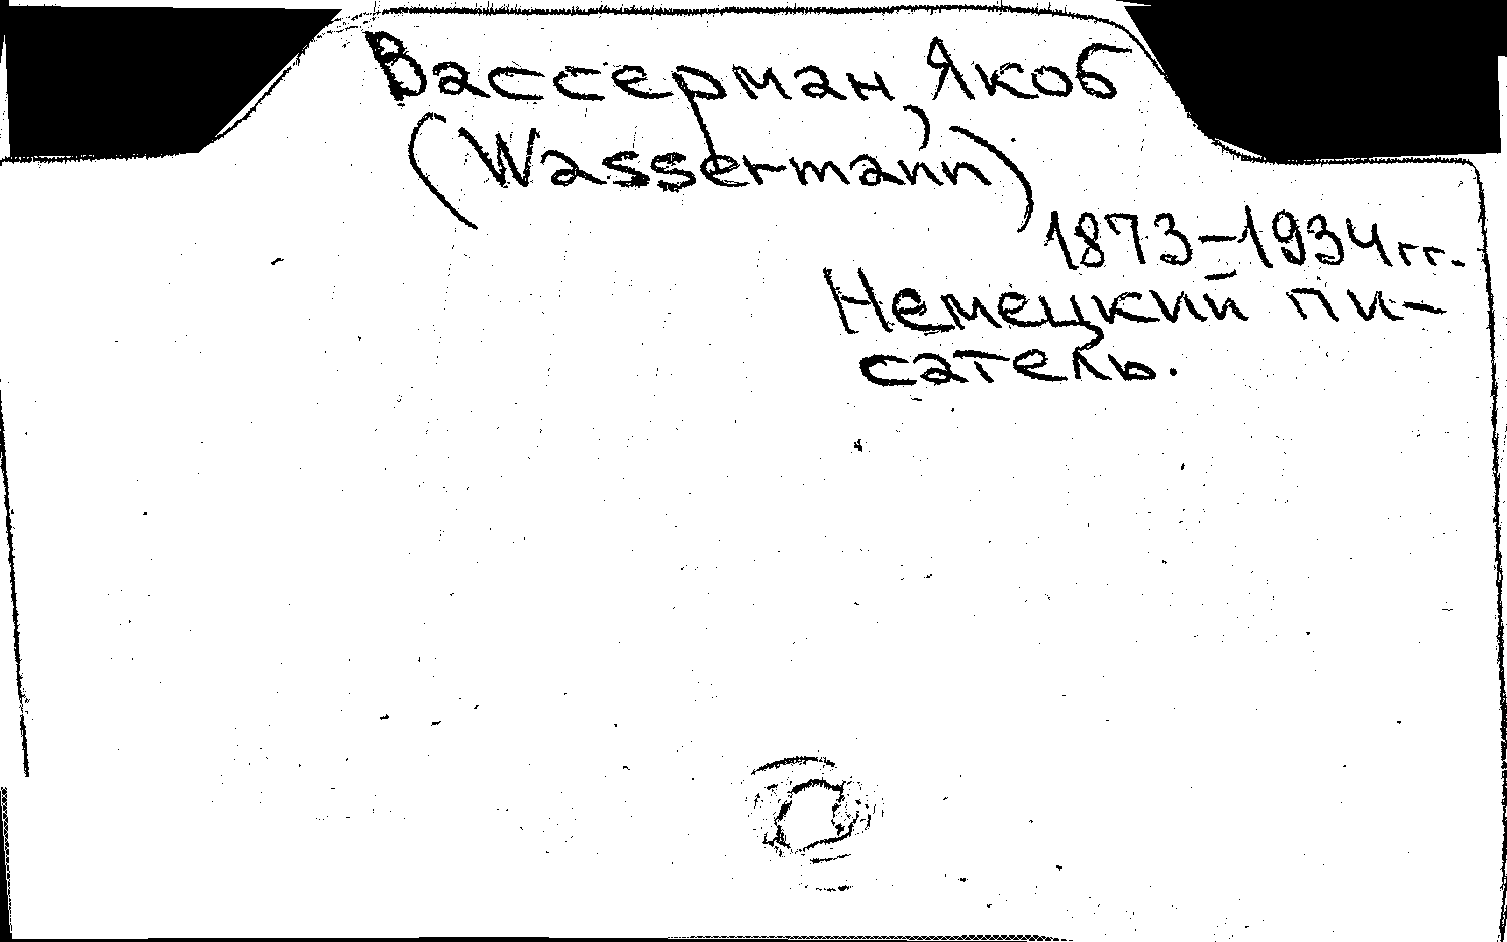 Вассерман, Якоб
(Wassermann)
1873–1934 гг.
Немецкий пи-
сатель.